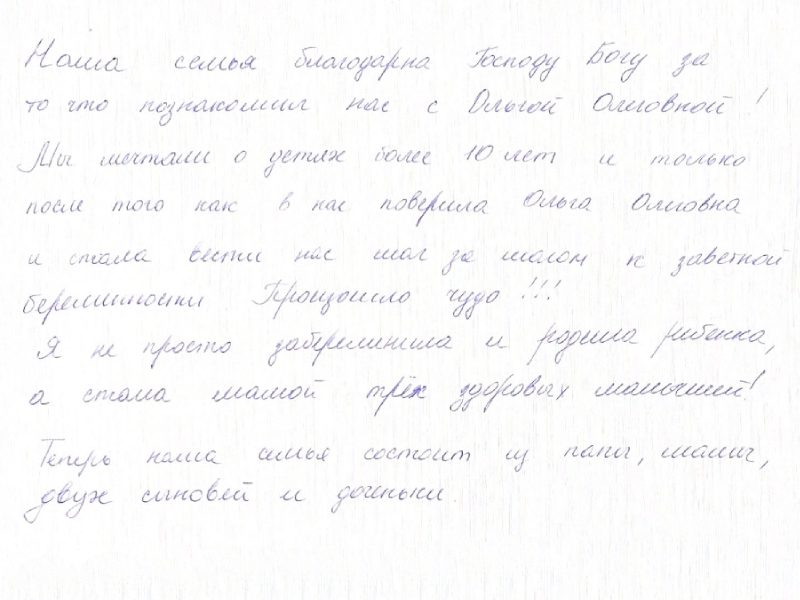 Наша семья благодарна Господу Богу за
то что познакомил нас с Ольгой Олеговной!
Мы мечтали о детях более 10 лет и только
после того как в нас поверила Ольга Олеговна
и стала вести нас шаг за шагом к заветной
беременности Произошло чудо!!!
Я не просто забеременела и родила ребенка,
а стала мамой трёх здоровых малышей!
Теперь наша семья состоит из папы, мамы,
двух сыновей и доченьки.